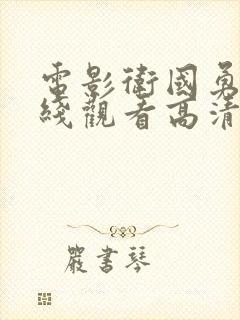 電影衛國勇
綫觀看高清
嚴書琴